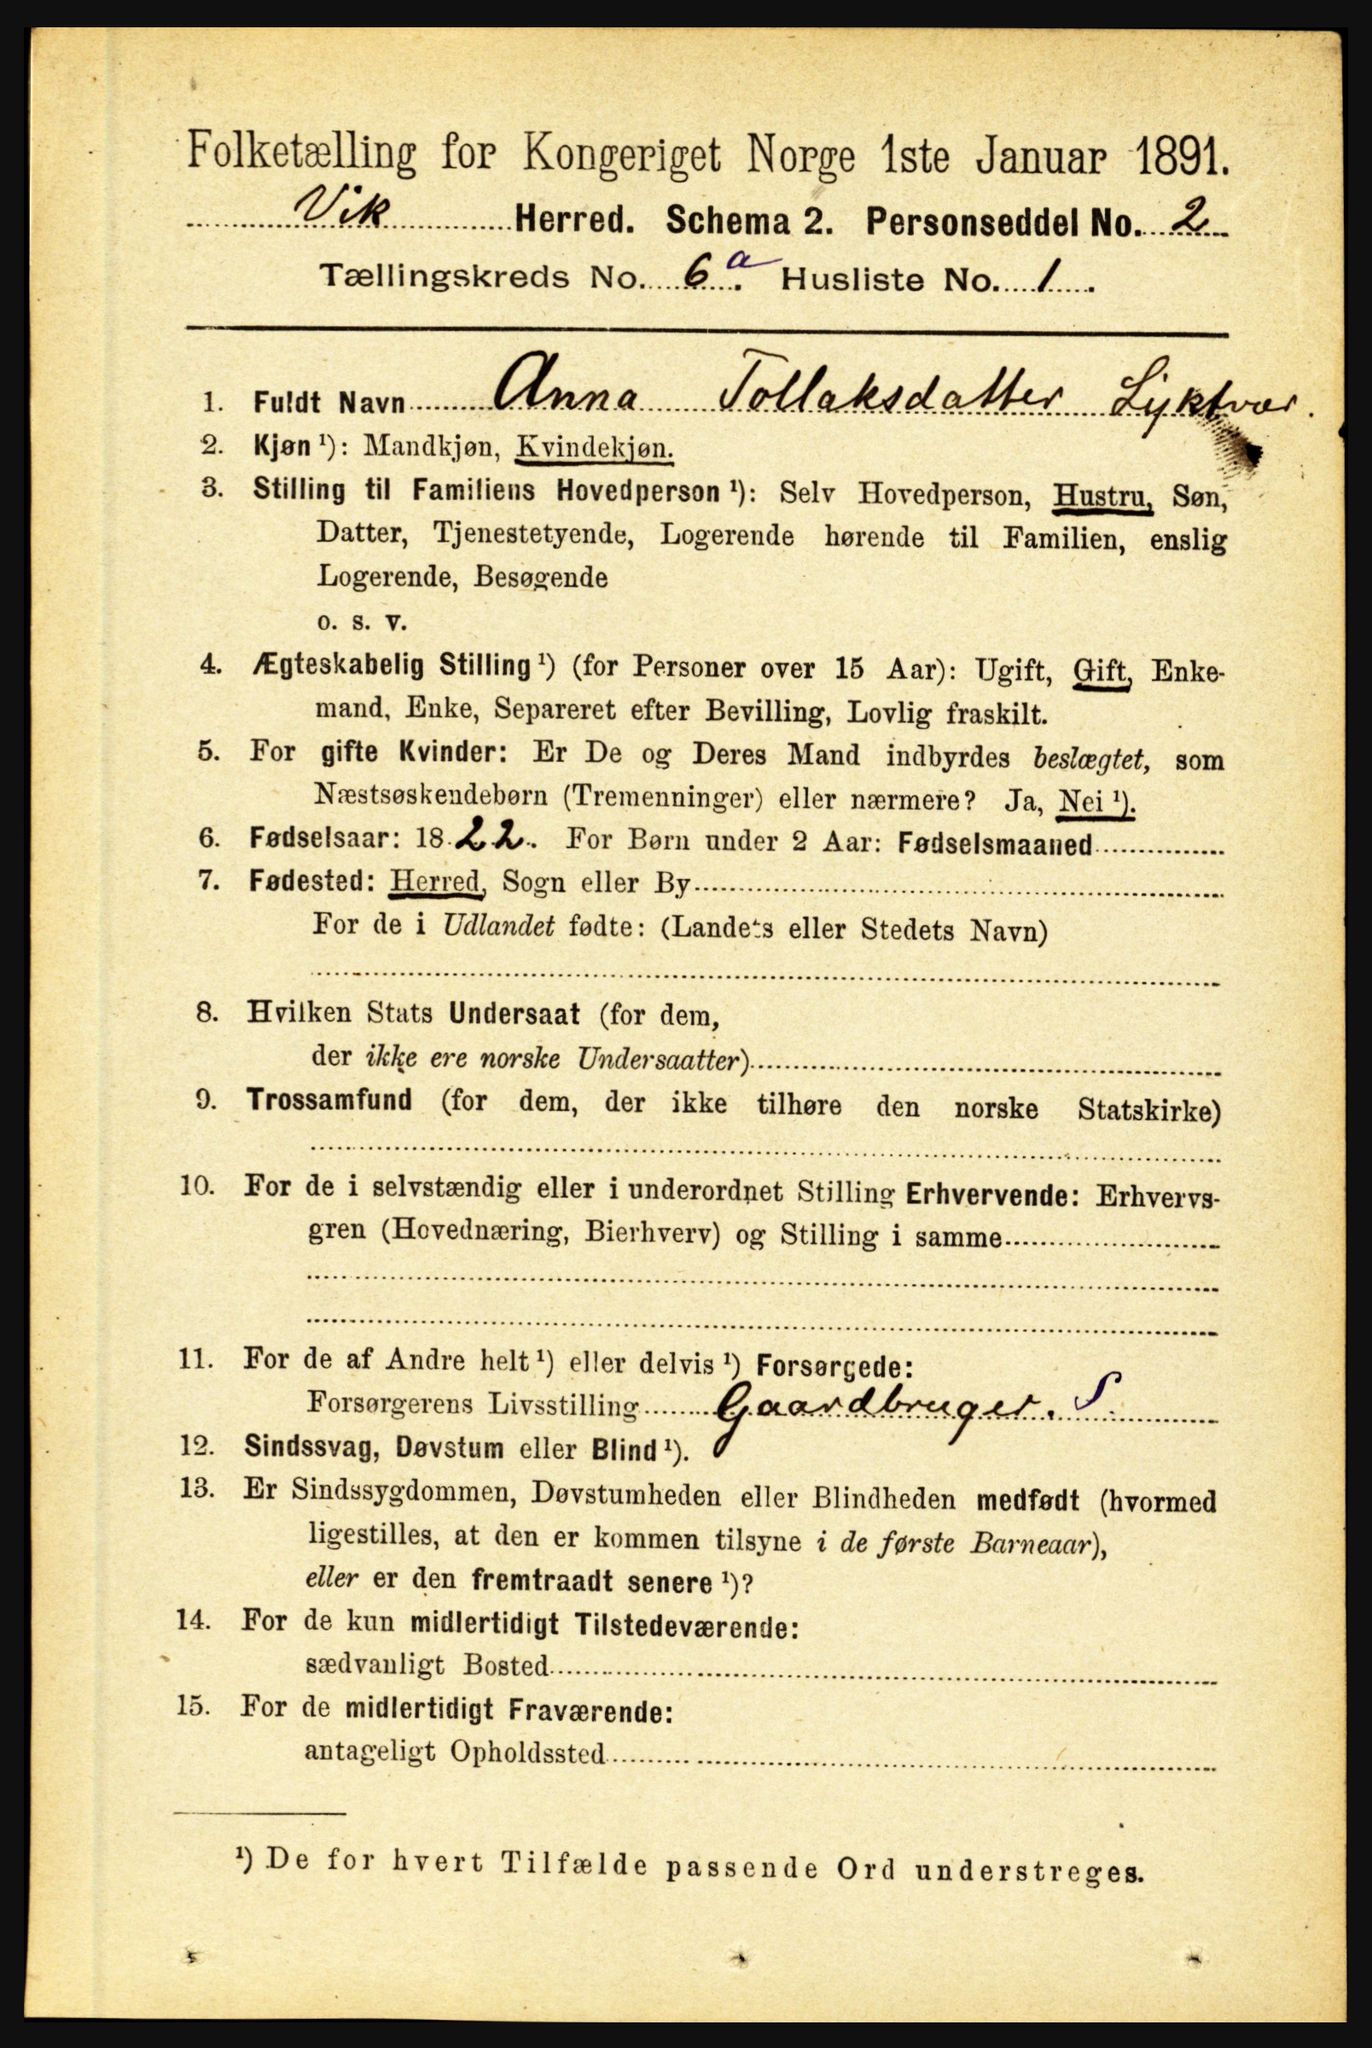 Folketælling for Kongeriget Norge 1ste Januar 1891.
Vik Herred. Schema 2. Personseddel No. 2
Tællingskreds No. 6 a. Husliste No. 1.
1. Fuldt Navn Anna Tollaksdatter Lyktvor.
2. Kjøn ¹): Mandkjøn, Kvindekjøn.
3. Stilling til Familiens Hovedperson ¹): Selv Hovedperson, Hustru, Søn,
Datter, Tjenestetyende, Logerende hørende til Familien, enslig
Logerende, Besøgende
o. s. v.
4. Ægteskabelig Stilling ¹) (for Personer over 15 Aar): Ugift, Gift, Enke-
mand, Enke, Separeret efter Bevilling, Lovlig fraskilt.
5. For gifte Kvinder: Er De og Deres Mand indbyrdes beslægtet, som
Næstsøskendebørn (Tremenninger) eller nærmere? Ja, Nei ¹).
6. Fødselsaar: 1822. For Børn under 2 Aar: Fødselsmaaned
7. Fødested: Herred, Sogn eller By
For de i Udlandet fødte: (Landets eller Stedets Navn)
8. Hvilken Stats Undersaat (for dem,
der ikke ere norske Undersaatter)
9. Trossamfund (for dem, der ikke tilhøre den norske Statskirke)
10. For de i selvstændig eller i underordnet Stilling Erhvervende: Erhvervs-
gren (Hovednæring, Bierhverv) og Stilling i samme
11. For de af Andre helt ¹) eller delvis ¹) Forsørgede:
Forsørgerens Livsstilling Gaardbruger. S.
12. Sindssvag, Døvstum eller Blind ¹).
13. Er Sindssygdommen, Døvstumheden eller Blindheden medfødt (hvormed
ligestilles, at den er kommen tilsyne i de første Barneaar),
eller er den fremtraadt senere ¹)?
14. For de kun midlertidigt Tilstedeværende:
sædvanligt Bosted
15. For de midlertidigt Fraværende:
antageligt Opholdssted
¹) De for hvert Tilfælde passende Ord understreges.